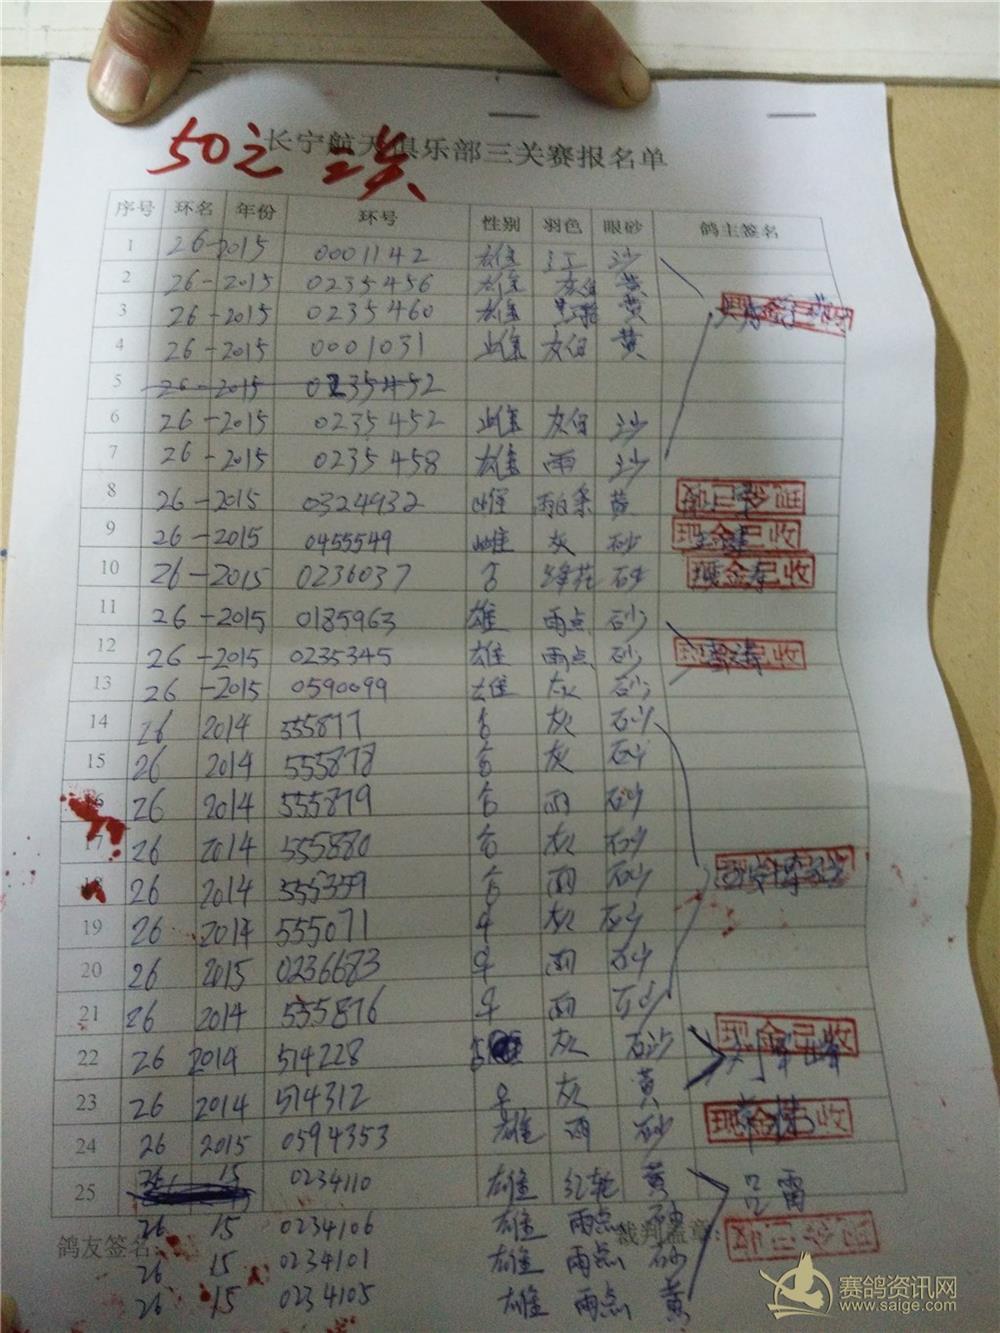 长宁航天俱乐部三关赛报名单
50元
序号 环名 年份 环号 性别 羽色 眼砂 鸽主签名
1 26-2015 0001142 雄 红 沙
2 26-2015 0235456 雄 灰白 黄
3 26-2015 0235460 雄 黄
4 26-2015 0001031 雌 灰白 黄
5 26-2015 0235452
6 26-2015 0235452 雌 灰白 沙
7 26-2015 0235458 雄 雨 沙
8 26-2015 0324932 雌 黄
9 26-2015 0455549 雌 灰 砂 现金已收
10 26-2015 0236037 合 绛花 砂 现金已收
11 26-2015 0185963 雄 雨点 砂
12 26-2015 0235345 雄 雨点 砂 现金已收
13 26-2015 0590099 雄 灰 砂
14 26 2014 555877 合 灰 砂
15 26 2014 555878 合 灰 砂
16 26 2014 555879 合 雨 砂
17 26 2014 555880 合 灰 砂
18 26 2014 555359 合 雨 砂
19 26 2014 555071 灰 砂
20 26 2015 0236683 雨 砂
21 26 2014 555876 雨 砂
22 26 2014 514228 灰 砂 现金已收
23 26 2014 514312 灰 黄
24 26 2015 0594353 雄 雨 砂 现金已收
25 26 15 0234110 雄 红轮 黄 吕雷
26 15 0234106 雄 雨点 砂
鸽友签名: 裁判盖章:
26 15 0234101 雄 雨点 砂
26 15 0234105 雄 雨点 黄
赛鸽资讯网
www.saige.com